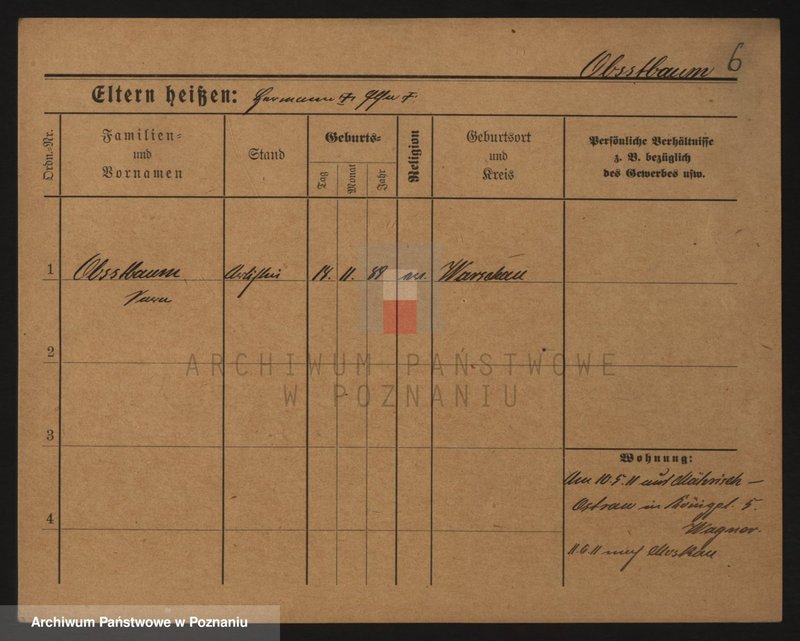 6
Obsstbaum
Eltern heißen: Hermann †
Ordn.-Nr.
Familien-
und
Vornamen
Stand
Geburts-
Tag
Monat
Jahr
Religion
Geburtsort
und
Kreis
Persönliche Verhältnisse
z. B. bezüglich
des Gewerbes usw.
1 Obsstbaum 11. 88 Warschau
2
3
4
Wohnung:
Am 10.5.11 aus Mährisch-
Ostrau in Königpl. 5.
Wagner.
11.6.11 nach Moskau
ARCHIWUM PAŃSTWOWE
W POZNANIU
Archiwum Państwowe w Poznaniu